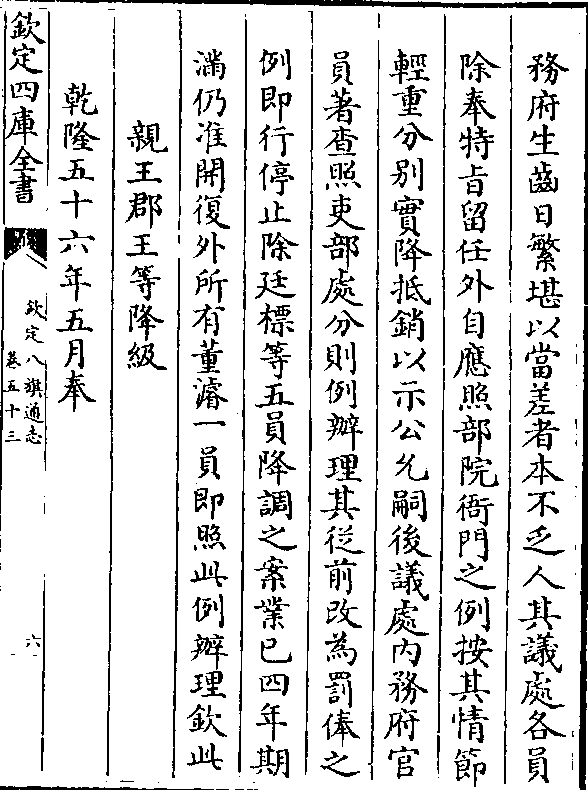 務府生齒日繁堪以當差者本不乏人其議處各員
除奉特㫖留任外自應照部院衙門之例按其情節
輕重分别實降抵銷以示公允嗣後議處内務府官
員著查照吏部處分則例辦理其從前改為罰俸之
例即行停止除廷標等五員降調之案業已四年期
滿仍准開復外所有董濬一員即照此例辦理欽此
親王郡王等降級
乾隆五十六年五月奉
欽定四庫全書
欽定八旗通志
卷五十三
六